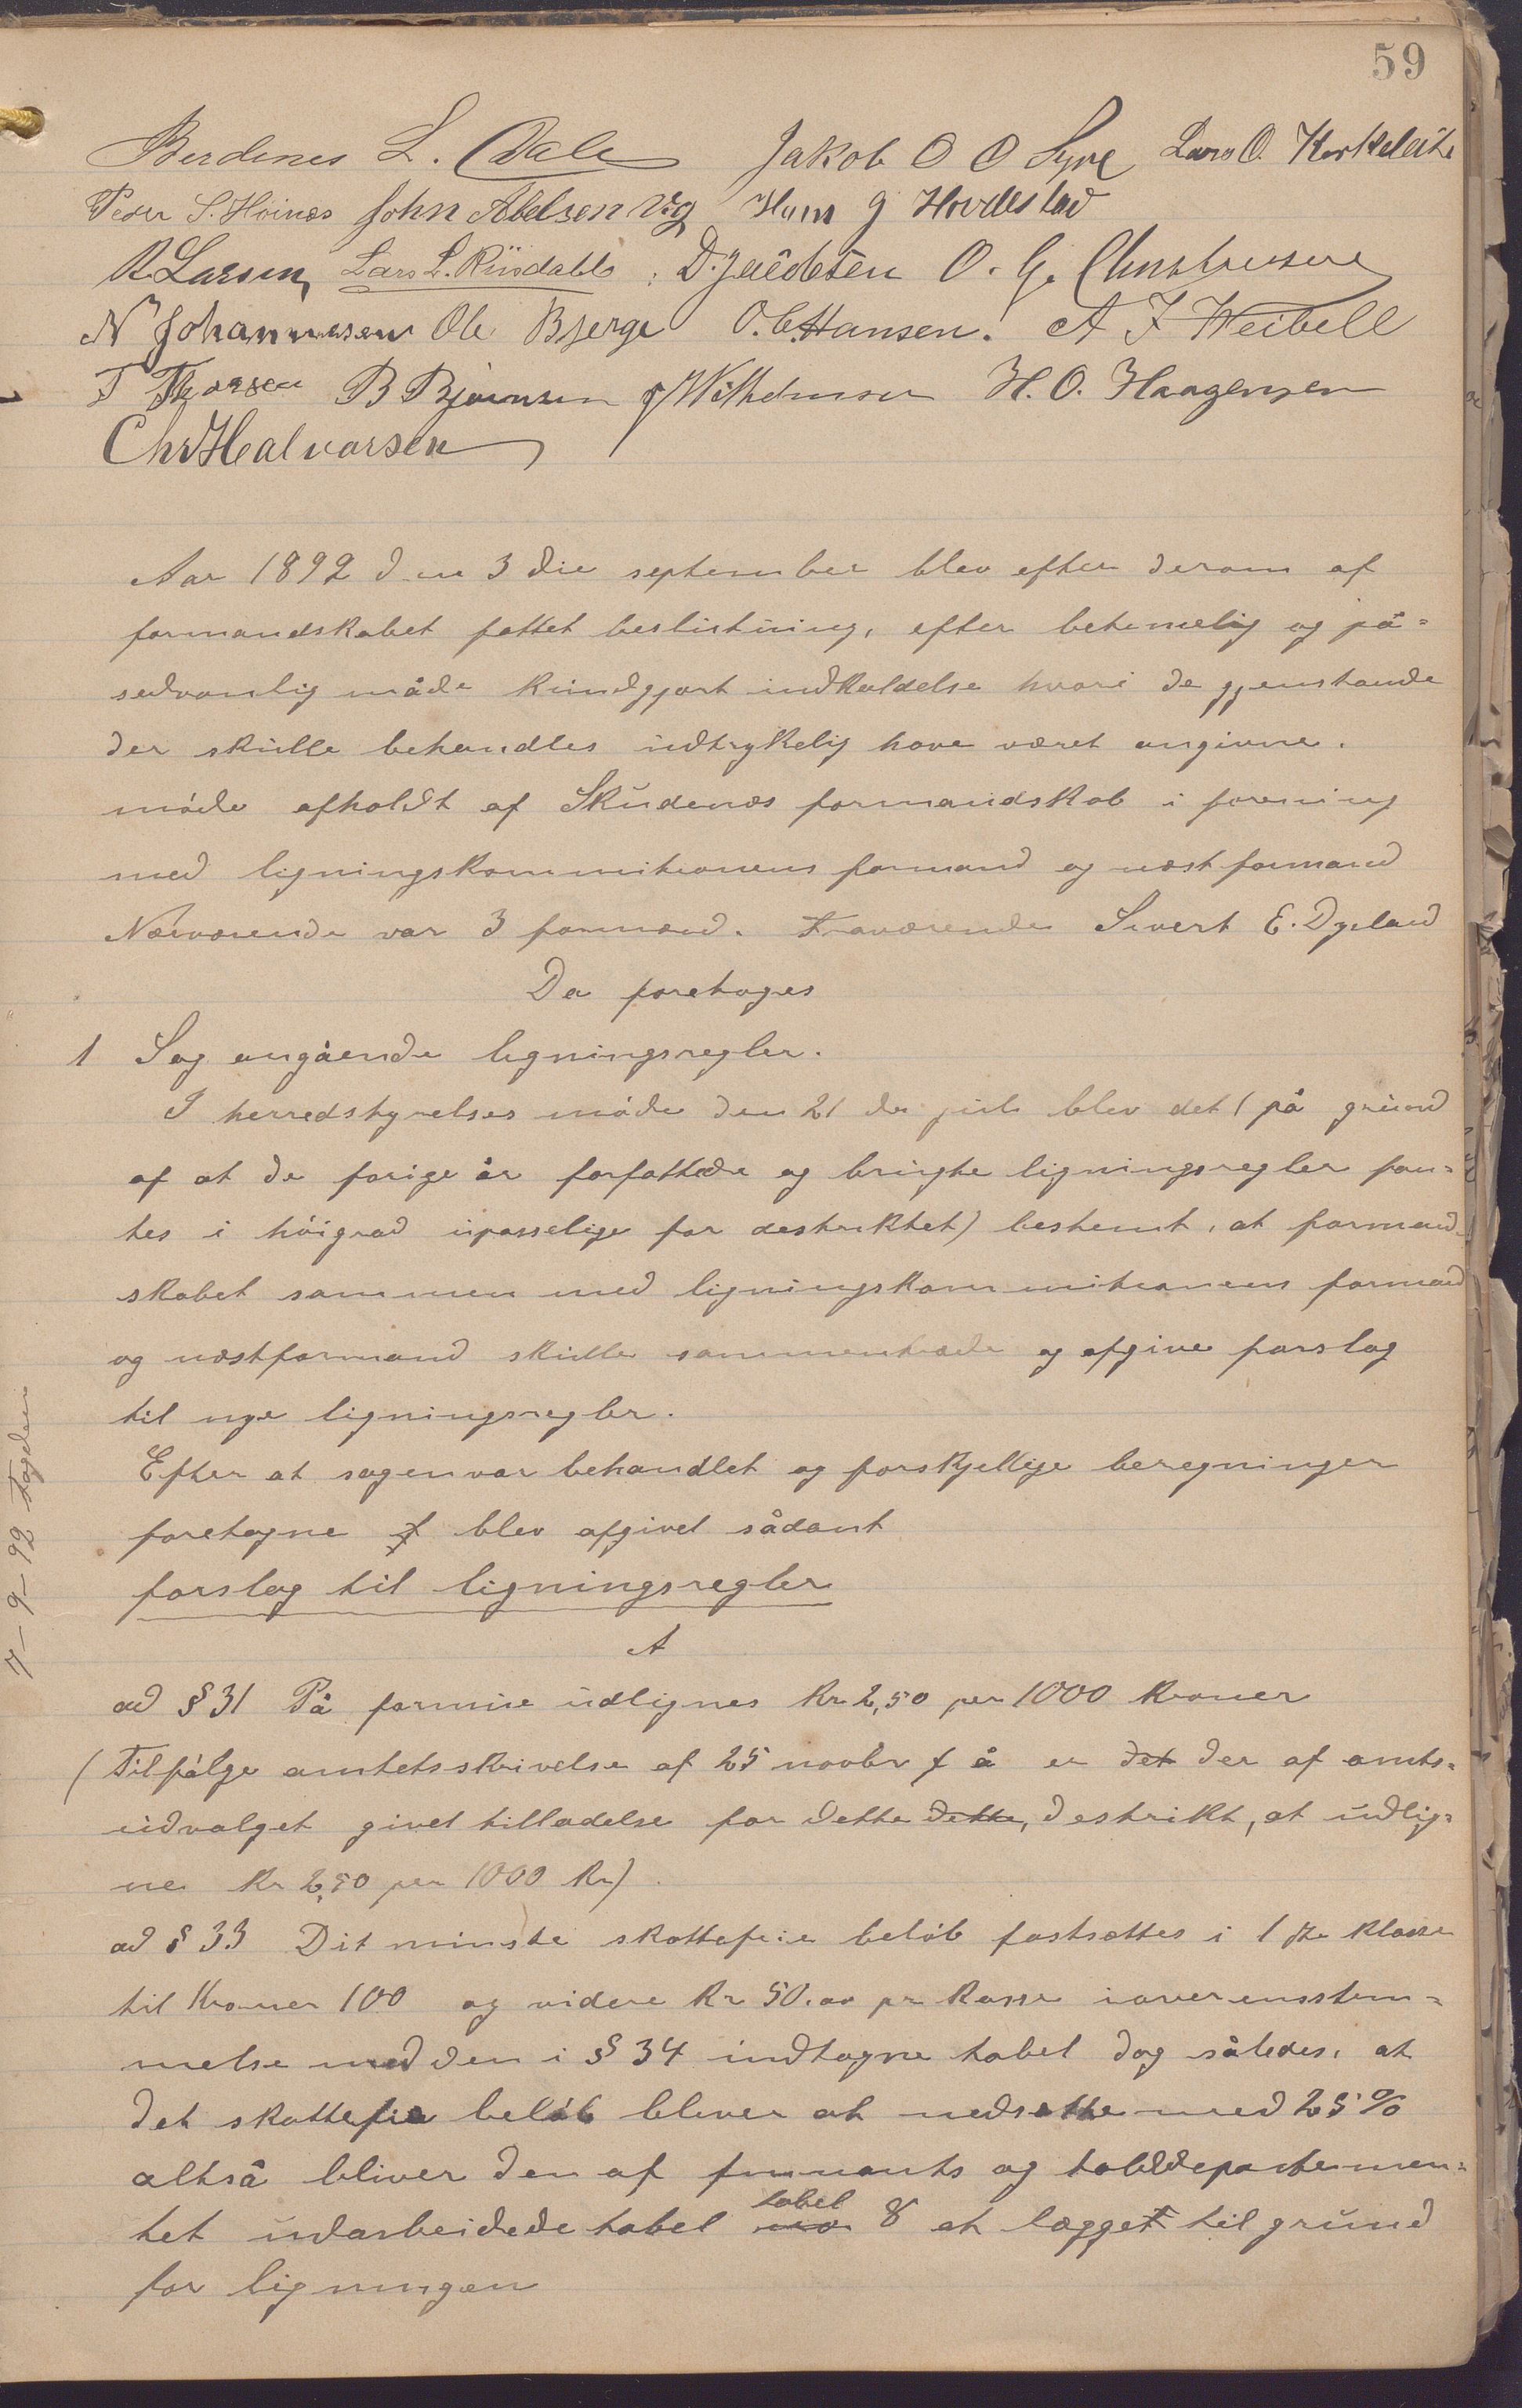 59
Berdines L. Dale Jakob O O Syre Lars O. Korkeleite
Peder S. Høines John Abelsen Vig Hans J Hovdestad
R Larsen, Lars L. Risdahl. D. Jacobsen O. G. Christensen
N Johannesen Ole Bjerge O. C. Hansen. A F Weibell
T Thorsen B Bjørnsen J Wilhelmsen H. O. Haagensen
Chr Halvorsen
Aar 1892 den 3die september blev efter derom af
formandskabet fattet beslutning, efter betimelig og på=
sedvanlig måde kundgjort indkaldelse hvori de gjenstande
der skulle behandles udtrykelig have været angivne.
møde afholdt af Skudenes formandskab i forening
med ligningskommitionens formand og næstformand
Nærværende var 3 formænd. Fraværende Sivert E. Dygeland
Da foretoges
1 Sag angående ligningsregler.
I herredstyrelses møde den 21de juli blev det (på grund
af at de forige år forfattede og brugte ligningsregler fan=
tes i høigrad upasselige for destriktet) bestemt, at formand=
skabet sammen med ligningskommitionens formand
og næstformand skulle sammentræde og afgive forslag
til nye ligningsregler.
Efter at sagen var behandlet og forskjellige beregninger
foretagne blev afgivet sådant
forslag til ligningsregler
A
ad § 31 På formue udlignes Kr 2,50 per 1000 Kroner
(Tilfølge amtets skrivelse af 25 novbr f å er det der af amts=
udvalget givet tilladelse for dette dette, destrikt, at udlig=
ne Kr 2,50 per 1000 Kr).
ad § 33 Dit minste skattefrie beløb fastsættes i 1ste klasse
til Kroner 100 og videre Kr 50.00 pr Kasse i overensstem=
melse med den i § 34 indtagne tabel dog således, at
det skattefrie beløb bliver at nedsætte med 25 %
altså bliver den af finants og tolddepartemen=
tet udarbeidede tabel tabel 8 at lægget til grund
for ligningen
7-9-92 Fogden